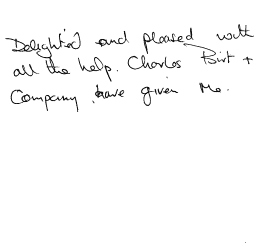 Delighted and pleased with
all the help. Charles Birt +
Company have given Me.